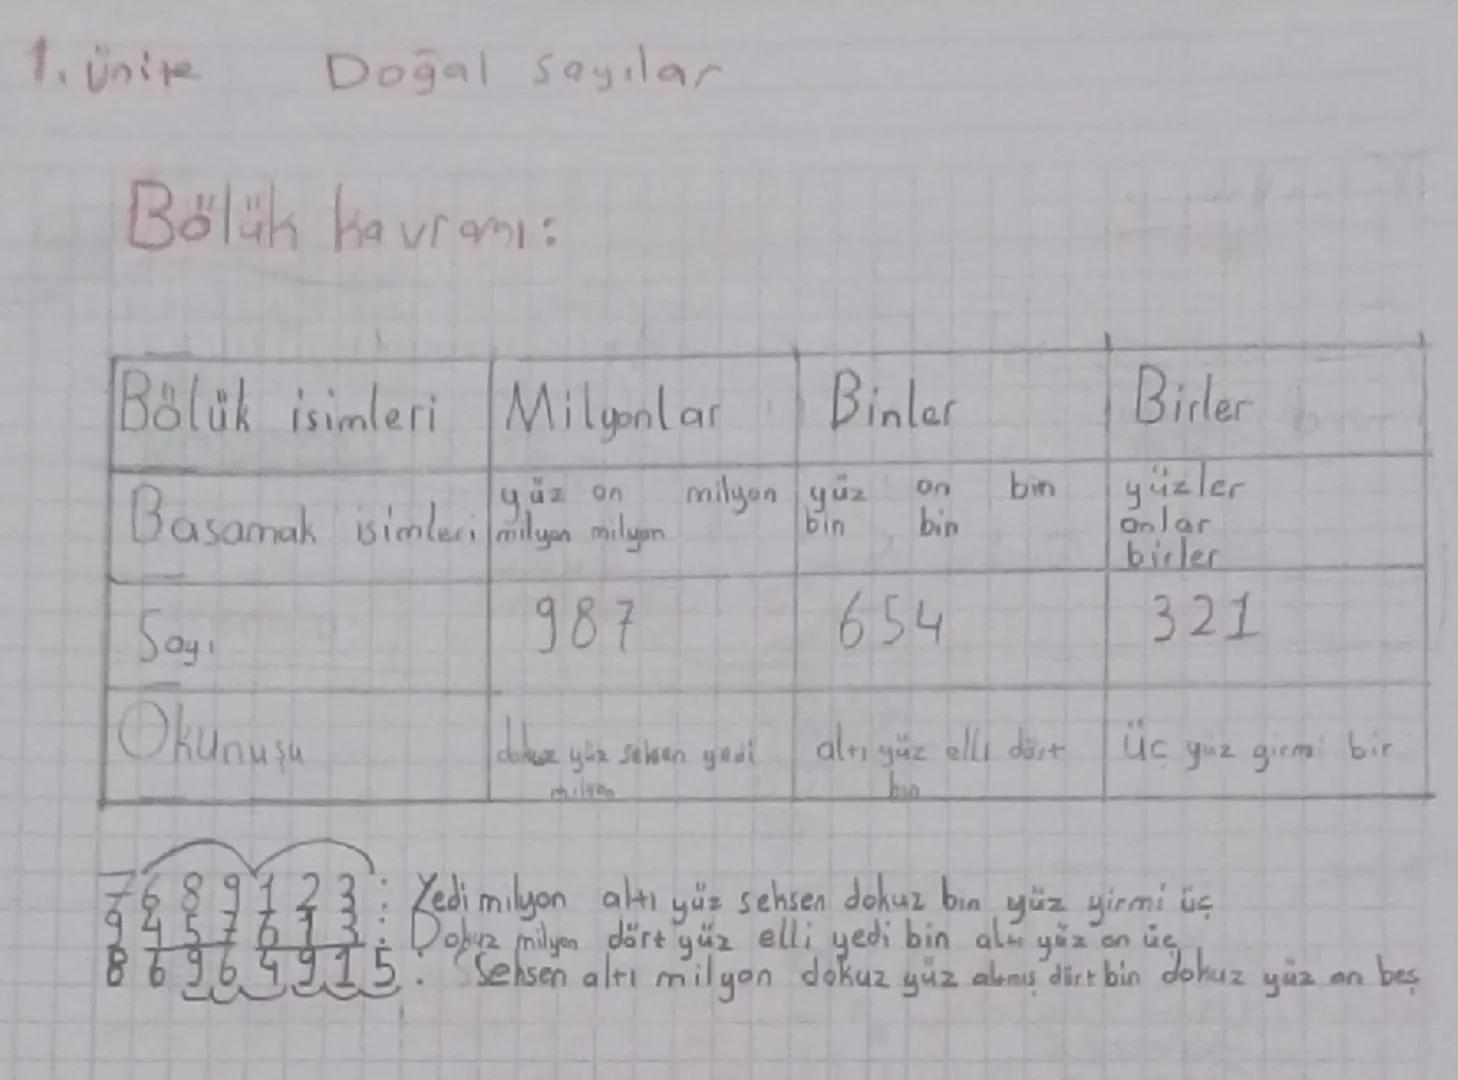 1. ünite Doğal sayılar
Bölük kavramı:
Bölük isimleri Milyonlar Binler Birler
Basamak isimleri yüz milyon on milyon milyon yüz bin on bin bin yüzler onlar birler
Sayı 987 654 321
Okunuşu dokuz yüz seksen yedi milyon altı yüz elli dört bin üç yüz girmi bir
7689123: Yedi milyon altı yüz seksen dokuz bin yüz yirmi üç
9457613: Dokuz milyon dört yüz elli yedi bin altı yüz on üç
86964915: Seksen altı milyon dokuz yüz altmış dört bin dokuz yüz on beş